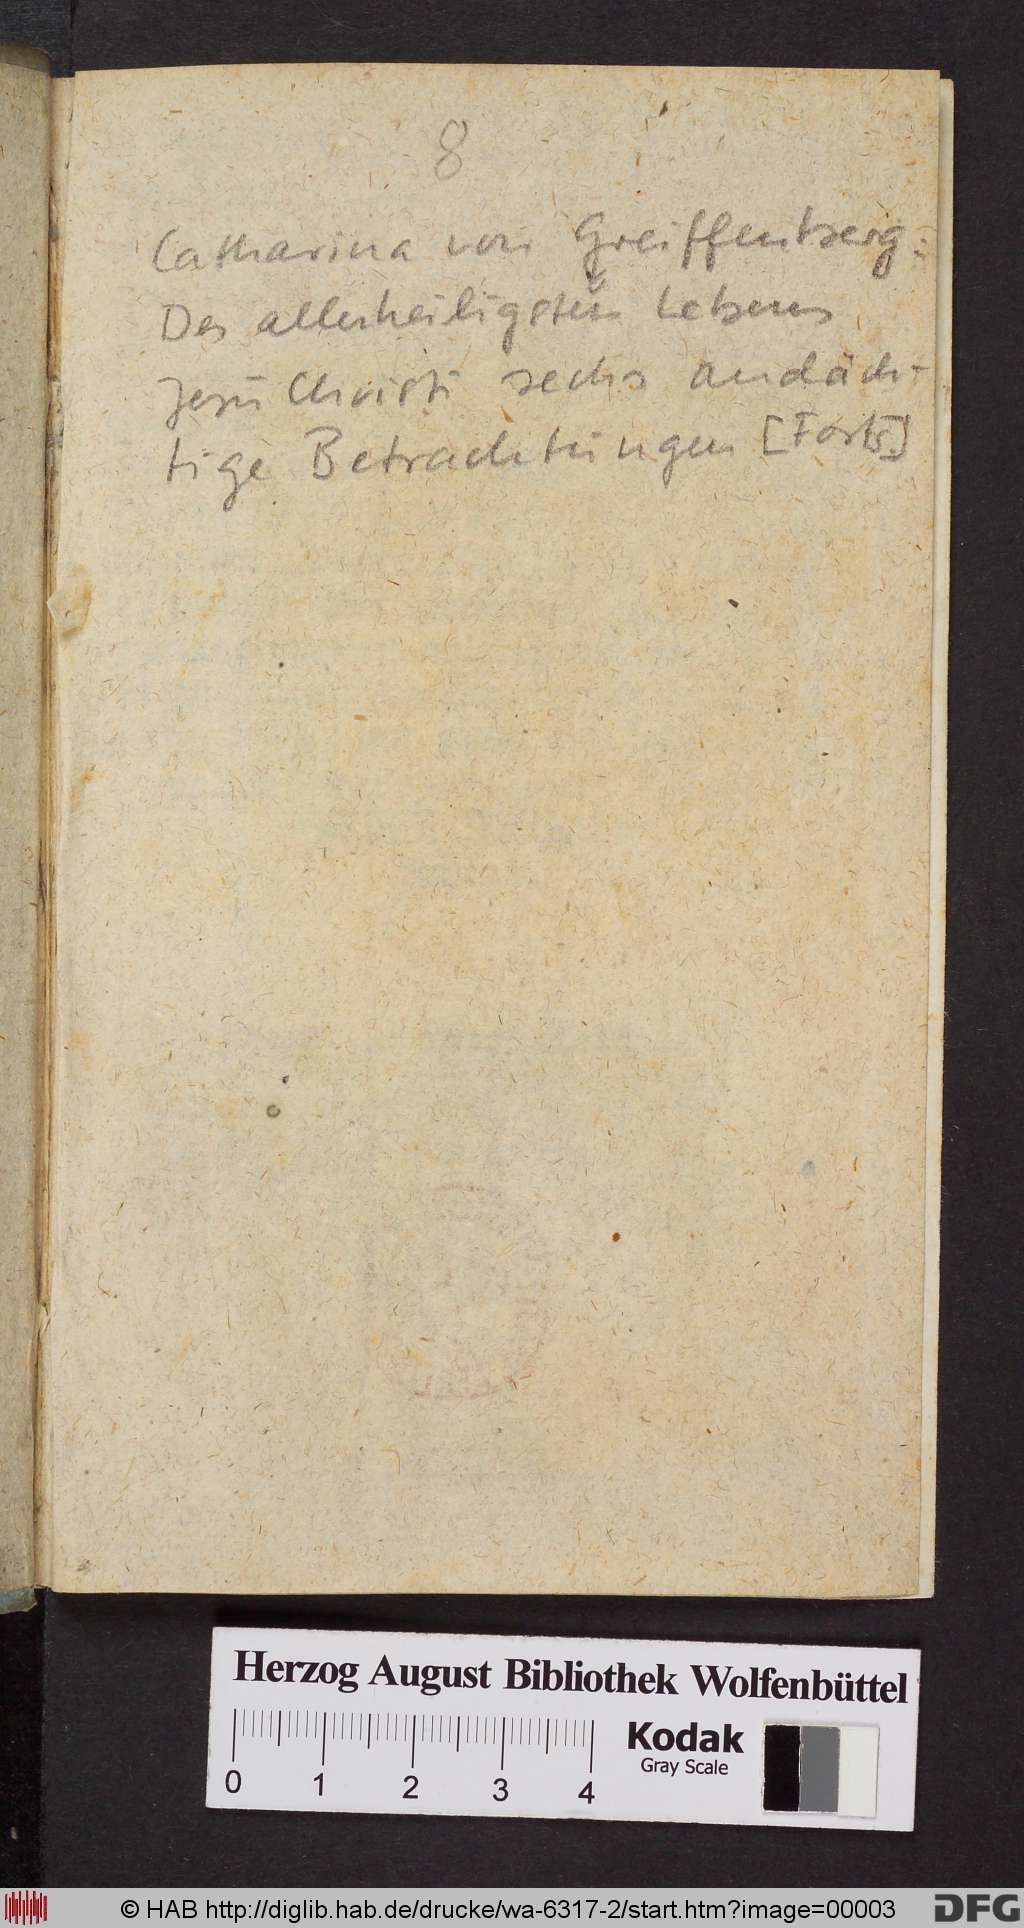 8
Catharina von Greiffenberg:
Des allerheiligsten Lebens
Jesu Christi sechs andäch-
tige Betrachtungen [Forts.]
Herzog August Bibliothek Wolfenbüttel
Kodak
Gray Scale
0 1 2 3 4
© HAB http://diglib.hab.de/drucke/wa-6317-2/start.htm?image=00003
DFG